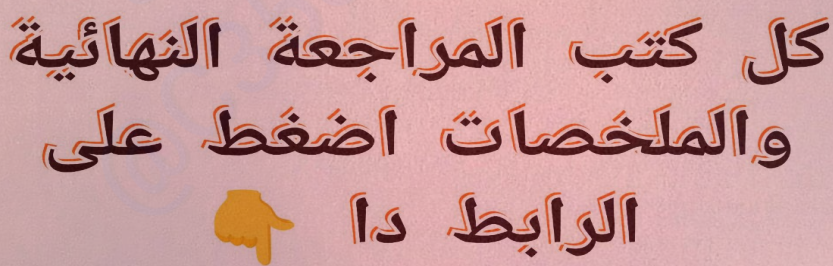 كل كتب المراجعة النهائية
والملخصات اضغط على
الرابط دا 👇